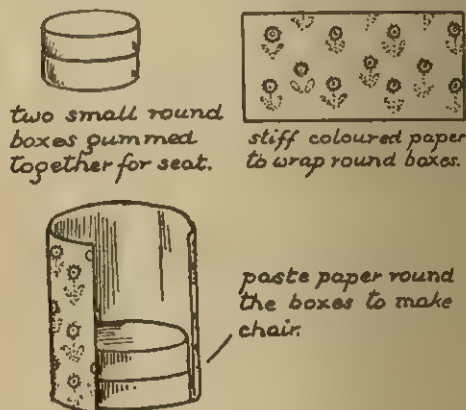 two small round
boxes gummed
together for seat.
stiff coloured paper
to wrap round boxes.
paste paper round
the boxes to make
chair.